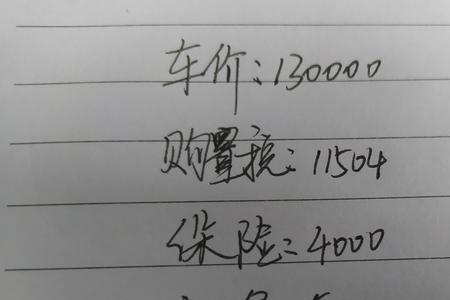 车价:130000
购置税:11504
保险:4000